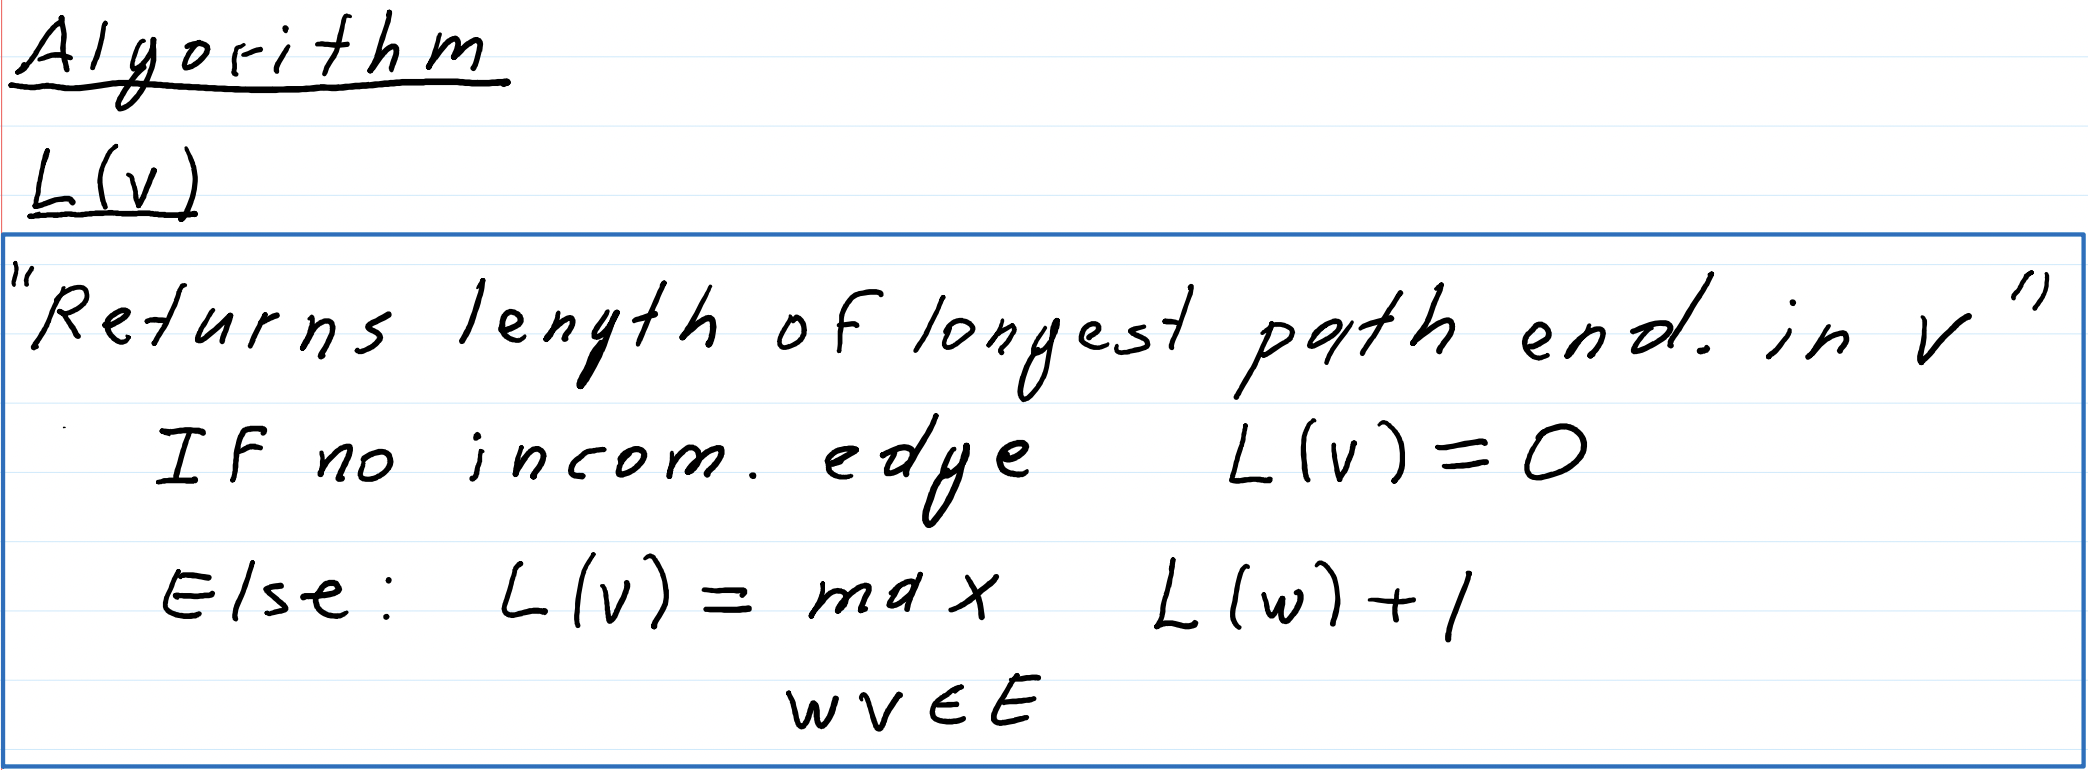 Algorithm
L(v)
"Returns length of longest path end. in v"
If no incom. edge L(v)=0
Else: L(v) = max L(w)+1
wv∈E